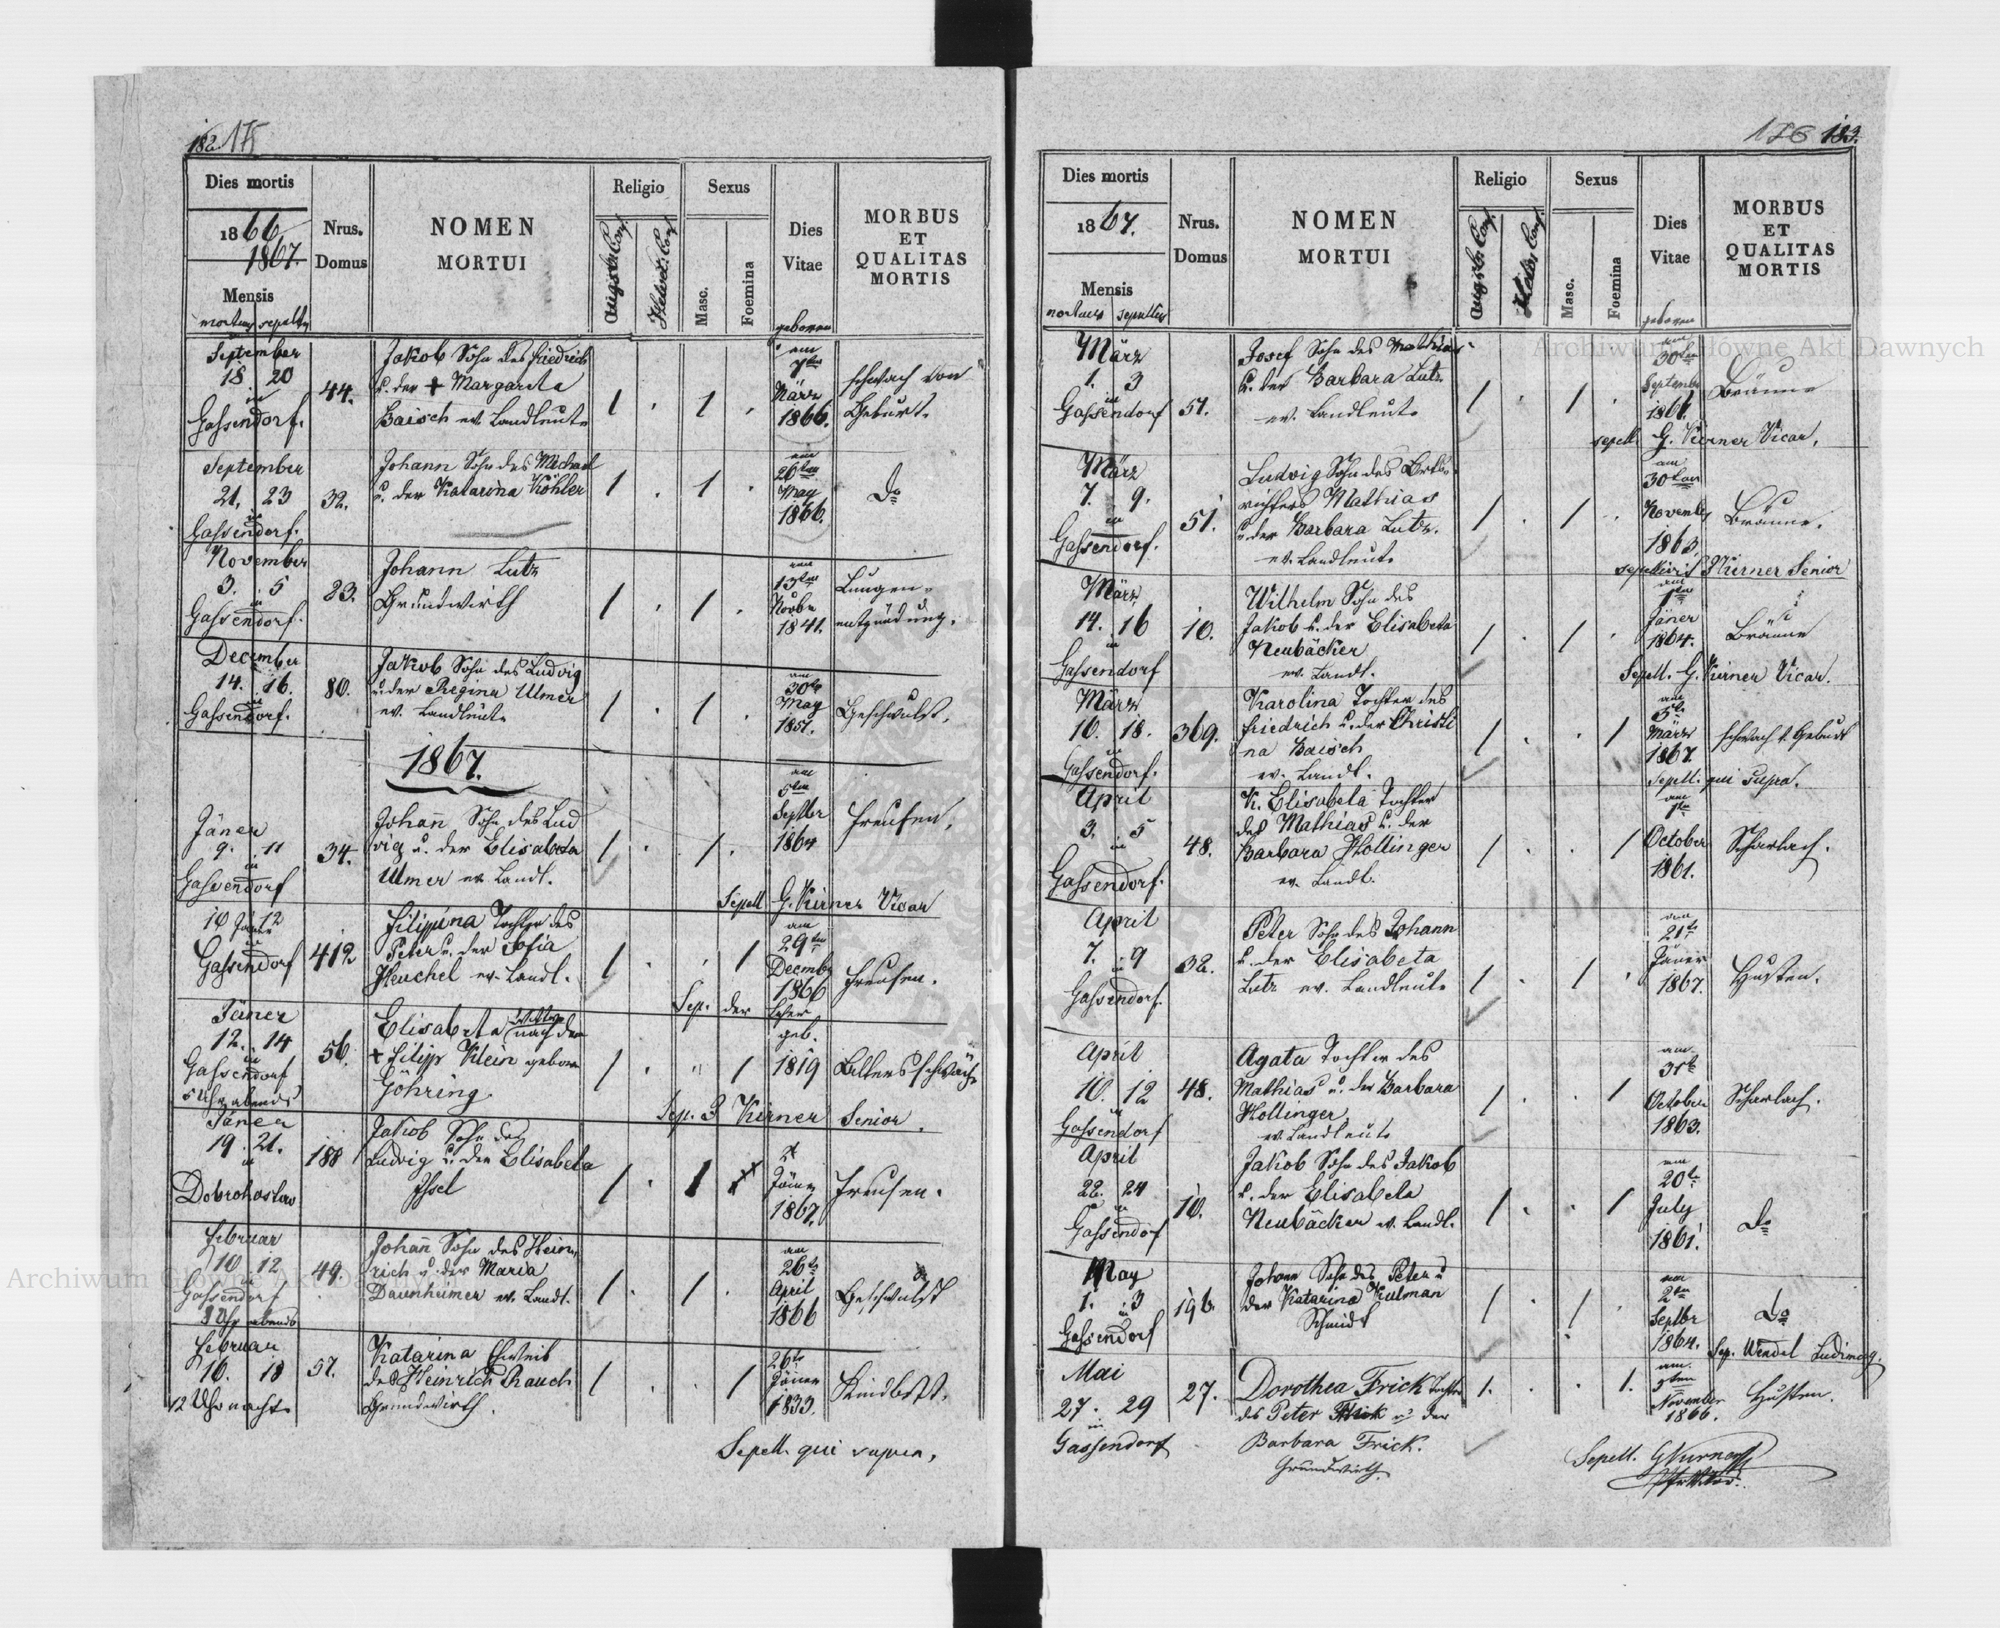 182. 175
Dies mortis
1866
1867.
Mensis
mortuus sepultus
Nrus.
Domus
NOMEN
MORTUI
Religio
Augsb. Conf.
Helvet. Conf.
Sexus
Masc.
Foemina
Dies
Vitae
geboren
MORBUS
ET
QUALITAS
MORTIS
September
18. 20
in
Gassendorf.
44.
Jakob Sohn des Friedrich
u. der + Margareta
Baisch ev. Landleute
1 . 1 .
am
7ten
März
1866.
schwach von
Geburt.
September
21. 23
in
Gassendorf.
32.
Johann Sohn des Michael
u. der Katarina Köhler
1 . 1 .
am
26ten
May
1866.
Do
November
3. 5
in
Gassendorf.
23.
Johann Lutz
Grundwirth
1 . 1 .
am
13ten
Novbr
1841.
Lungen-
entzündung.
December
14. 16.
in
Gassendorf.
80.
Jakob Sohn des Ludvig
u. der Regina Ulmer
ev. Landleute
1 . 1 .
am
30te
May
1851.
Geschwulst.
1867.
Jäner
9. 11
in
Gassendorf
34.
Johann Sohn des Lud
vig u. der Elisabeta
Ulmer ev. Landl.
1 . 1 .
am
5ten
Septber
1864
Freusen.
Sepell G. Kürner Vicar
10 Jäner 12
in
Gassendorf
412
Filippina Tochter des
Peter u. der Sofia
Heuchel ev. Landl.
1 . . 1
am
29ten
Decembr
1866
Freusen.
Sep. der Leher
Jäner
12. 14
in
Gassendorf
5 Uhr abends
56.
Elisabeta Witwe nach dem
+ Filipp Klein geborn
Göhring
1 . " 1
geb.
1819
Altersschwäche
Sep. J Kürner Senior.
Jäner
19. 21.
in
Dobrohostow
188
Jakob Sohn des
Ludvig u. der Elisabeta
Issel
1 . 1
Jäner
1867.
Freusen.
Februar
10 12
in
Gassendorf
8 Uhr abends
49.
Johann Sohn des Hein
rich u. der Maria
Daunheimer ev. Landl.
1 . 1 .
am
26te
April
1866
Geschwulst
Februar
16. 18
12 Uhr nachts
57.
Katarina Eheweib
des Heinrich Rauch
Grundwirth.
1 . . 1
26te
Jäner
1833.
Kindbett.
Sepell. qui supra.
176 183.
Dies mortis
1867.
Mensis
mortuus sepultus
Nrus.
Domus
NOMEN
MORTUI
Religio
Augsb. Conf.
Helv. Conf.
Sexus
Masc.
Foemina
Dies
Vitae
geboren
MORBUS
ET
QUALITAS
MORTIS
März
1. 3
in
Gassendorf
51.
Josef Sohn des Mathias
u. der Barbara Lutz
ev. Landleute
1 . 1 .
am
30ten
September
1861.
Bräune
sepell G. Kürner Vicar.
März
7. 9.
in
Gassendorf.
51.
Ludvig Sohn des Orts-
richters Mathias
u. der Barbara Lutz.
ev. Landleute
1 . 1 .
am
30ten
November
1863.
Bräune.
sepelivit J Kürner Senior
März
14. 16
in
Gassendorf
10.
Wilhelm Sohn des
Jakob u. der Elisabeta
Neubäcker
ev. Landl.
1 . 1 .
am
1ten
Jäner
1864.
Bräune
Sepell. G. Kürner Vicar.
März
16. 18.
in
Gassendorf.
369.
Karolina Tochter des
Friedrich u. der Christi
na Baisch
ev. Landl.
1 . . 1
am
5te
März
1867.
schwach v. Geburt
Sepell. qui supra.
April
3. 5
in
Gassendorf.
48.
K. Elisabeta Tochter
des Mathias u. der
Barbara Hollinger
ev. Landl.
1 . . 1
am
1te
October
1861.
Scharlach.
April
7. 9
in
Gassendorf.
32.
Peter Sohn des Johann
u. der Elisabeta
Lutz ev. Landleute
1 . 1 .
am
21te
Jäner
1867.
Husten.
April
10. 12
in
Gassendorf
48.
Agata Tochter des
Mathias u. der Barbara
Hollinger
ev. Landleute
1 . . 1
am
31te
October
1863.
Scharlach.
April
22. 24
in
Gassendorf
10.
Jakob Sohn des Jakob
u. der Elisabeta
Neubäcker ev. Landl.
1 . . 1
am
20te
July
1861.
Do
May
1. 3
in
Gassendorf
196
Johann Sohn des Peter u
der Katarina Kulman
Schmidt
1 . 1 .
am
2ten
Septbr
1864.
Do
Sep. Wendel Ludimag.
Mai
27. 29
in
Gassendorf
27.
Dorothea Frick Tochter
des Peter Frick u. der
Barbara Frick.
Grundwirth.
1. . . 1.
am
9ten
November
1866.
Husten.
Sepell. G Kürner
Archiwum Główne Akt Dawnych
Archiwum Główne Akt Dawnych